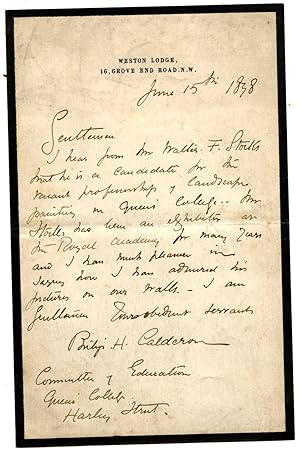 WESTON LODGE,
16, GROVE END ROAD. N.W.
June 15th 1898
Gentlemen
I hear from Mr Walter F. Stocks
that he is a candidate for the
vacant professorship of Landscape
painting in Queens College. Mr
Stocks has been an exhibitor at
the Royal Academy for many years
and I have much pleasure in
saying how I have admired his
pictures on our walls - I am
Gentlemen Your obedient servant
Philip H. Calderon
Committee of Education
Queens College
Harley Street.